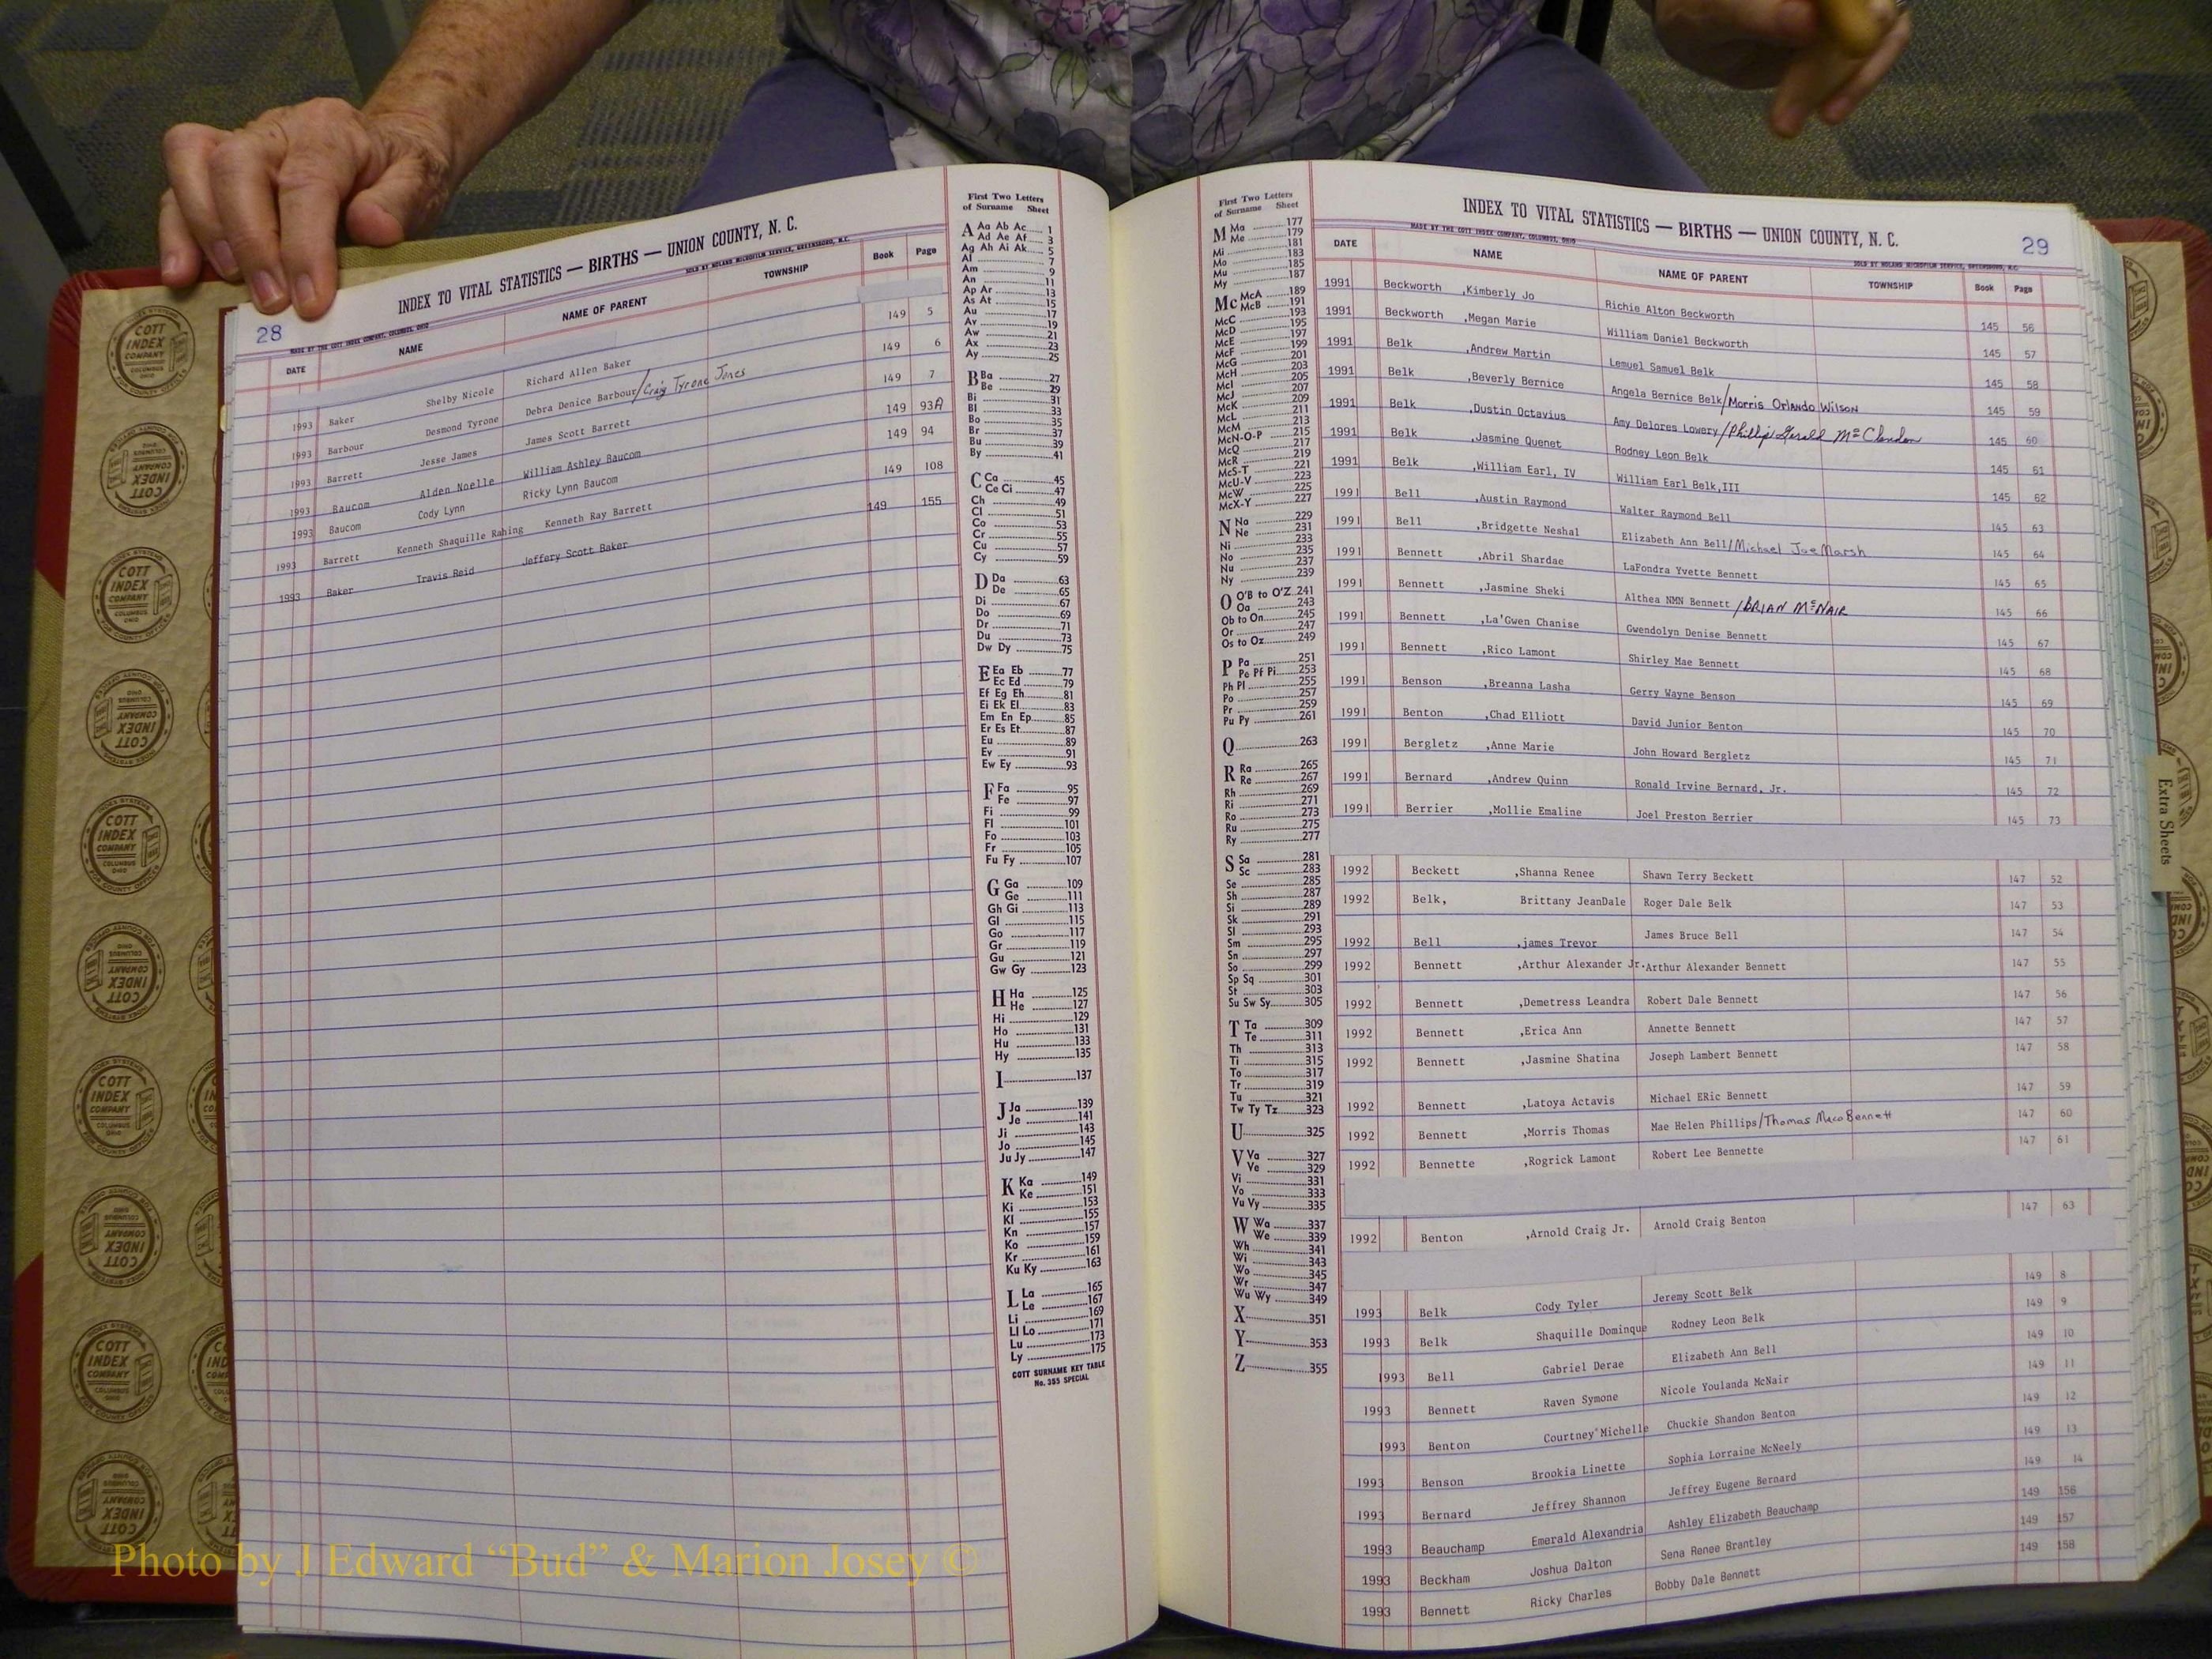 28
INDEX TO VITAL STATISTICS — BIRTHS — UNION COUNTY, N. C.
MADE BY THE COTT INDEX COMPANY, COLUMBUS, OHIO
SOLD BY NOLAND MICROFILM SERVICE, GREENSBORO, N.C.
DATE NAME NAME OF PARENT TOWNSHIP Book Page
1993 Baker Shelby Nicole Richard Allen Baker 149 5
1993 Barbour Desmond Tyrone Debra Denice Barbour/Craig Tyrone Jones 149 6
1993 Barrett Jesse James James Scott Barrett 149 7
1993 Baucom Alden Noelle William Ashley Baucom 149 93A
1993 Baucom Cody Lynn Ricky Lynn Baucom 149 94
1993 Barrett Kenneth Shaquille Rahing Kenneth Ray Barrett 149 108
1993 Baker Travis Reid Jeffery Scott Baker 149 155
First Two Letters
of Surname Sheet
A Aa Ab Ac 1
Ad Ae Af 3
Ag Ah Ai Ak 5
Al 7
Am 9
An 11
Ap Ar 13
As At 15
Au 17
Av 19
Aw 21
Ax 23
Ay 25
B Ba 27
Be 29
Bi 31
Bl 33
Bo 35
Br 37
Bu 39
By 41
C Ca 45
Ce Ci 47
Ch 49
Cl 51
Co 53
Cr 55
Cu 57
Cy 59
D Da 63
De 65
Di 67
Do 69
Dr 71
Du 73
Dw Dy 75
E Ea Eb 77
Ec Ed 79
Ef Eg Eh 81
Ei Ek El 83
Em En Ep 85
Er Es Et 87
Eu 89
Ev 91
Ew Ey 93
F Fa 95
Fe 97
Fi 99
Fl 101
Fo 103
Fr 105
Fu Fy 107
G Ga 109
Ge 111
Gh Gi 113
Gl 115
Go 117
Gr 119
Gu 121
Gw Gy 123
H Ha 125
He 127
Hi 129
Ho 131
Hu 133
Hy 135
I 137
J Ja 139
Je 141
Ji 143
Jo 145
Ju Jy 147
K Ka 149
Ke 151
Ki 153
Kl 155
Kn 157
Ko 159
Kr 161
Ku Ky 163
L La 165
Le 167
Li 169
Ll Lo 171
Lu 173
Ly 175
COTT SURNAME KEY TABLE
No. 355 SPECIAL
First Two Letters
of Surname Sheet
M Ma 177
Me 179
Mi 181
Mo 183
Mu 185
My 187
Mc McA 189
McB 191
McC 193
McD 195
McE 197
McF 199
McG 201
McH 203
McI 205
McJ 207
McK 209
McL 211
McM 213
McN-O-P 215
McQ 217
McR 219
McS-T 221
McU-V 223
McW 225
McX-Y 227
N Na 229
Ne 231
Ni 233
No 235
Nu 237
Ny 239
O O'B to O'Z 241
Oa 243
Ob to On 245
Or 247
Os to Oz 249
P Pa 251
Pe Pf Pi 253
Ph Pl 255
Po 257
Pr 259
Pu Py 261
Q 263
R Ra 265
Re 267
Rh 269
Ri 271
Ro 273
Ru 275
Ry 277
S Sa 281
Sc 283
Se 285
Sh 287
Si 289
Sk 291
Sl 293
Sm 295
Sn 297
So 299
Sp Sq 301
St 303
Su Sw Sy 305
T Ta 309
Te 311
Th 313
Ti 315
To 317
Tr 319
Tu 321
Tw Ty Tz 323
U 325
V Va 327
Ve 329
Vi 331
Vo 333
Vu Vy 335
W Wa 337
We 339
Wh 341
Wi 343
Wo 345
Wr 347
Wu Wy 349
X 351
Y 353
Z 355
INDEX TO VITAL STATISTICS — BIRTHS — UNION COUNTY, N. C.
29
MADE BY THE COTT INDEX COMPANY, COLUMBUS, OHIO
SOLD BY NOLAND MICROFILM SERVICE, GREENSBORO, N.C.
DATE NAME NAME OF PARENT TOWNSHIP Book Page
1991 Beckworth ,Kimberly Jo Richie Alton Beckworth 145 56
1991 Beckworth ,Megan Marie William Daniel Beckworth 145 57
1991 Belk ,Andrew Martin Lemuel Samuel Belk 145 58
1991 Belk ,Beverly Bernice Angela Bernice Belk/Morris Orlando Wilson 145 59
1991 Belk ,Dustin Octavius Amy Delores Lowery/Phillip Gerald McClendon 145 60
1991 Belk ,Jasmine Quenet Rodney Leon Belk 145 61
1991 Belk ,William Earl, IV William Earl Belk,III 145 62
1991 Bell ,Austin Raymond Walter Raymond Bell 145 63
1991 Bell ,Bridgette Neshal Elizabeth Ann Bell/Michael Joe Marsh 145 64
1991 Bennett ,Abril Shardae LaFondra Yvette Bennett 145 65
1991 Bennett ,Jasmine Sheki Althea NMN Bennett /BRIAN McNAIR 145 66
1991 Bennett ,La'Gwen Chanise Gwendolyn Denise Bennett 145 67
1991 Bennett ,Rico Lamont Shirley Mae Bennett 145 68
1991 Benson ,Breanna Lasha Gerry Wayne Benson 145 69
1991 Benton ,Chad Elliott David Junior Benton 145 70
1991 Bergletz ,Anne Marie John Howard Bergletz 145 71
1991 Bernard ,Andrew Quinn Ronald Irvine Bernard, Jr. 145 72
1991 Berrier ,Mollie Emaline Joel Preston Berrier 145 73
1992 Beckett ,Shanna Renee Shawn Terry Beckett 147 52
1992 Belk, Brittany JeanDale Roger Dale Belk 147 53
1992 Bell ,james Trevor James Bruce Bell 147 54
1992 Bennett ,Arthur Alexander Jr. Arthur Alexander Bennett 147 55
1992 Bennett ,Demetress Leandra Robert Dale Bennett 147 56
1992 Bennett ,Erica Ann Annette Bennett 147 57
1992 Bennett ,Jasmine Shatina Joseph Lambert Bennett 147 58
1992 Bennett ,Latoya Actavis Michael ERic Bennett 147 59
1992 Bennett ,Morris Thomas Mae Helen Phillips/Thomas Maco Bennett 147 60
1992 Bennette ,Rogrick Lamont Robert Lee Bennette 147 61
1992 Benton ,Arnold Craig Jr. Arnold Craig Benton 147 63
1993 Belk Cody Tyler Jeremy Scott Belk 149 8
1993 Belk Shaquille Dominque Rodney Leon Belk 149 9
1993 Bell Gabriel Derae Elizabeth Ann Bell 149 10
1993 Bennett Raven Symone Nicole Youlanda McNair 149 11
1993 Benton Courtney Michelle Chuckie Shandon Benton 149 12
1993 Benson Brookia Linette Sophia Lorraine McNeely 149 13
1993 Bernard Jeffrey Shannon Jeffrey Eugene Bernard 149 14
1993 Beauchamp Emerald Alexandria Ashley Elizabeth Beauchamp 149 156
1993 Beckham Joshua Dalton Sena Renee Brantley 149 157
1993 Bennett Ricky Charles Bobby Dale Bennett 149 158
Extra Sheets
COTT
INDEX
COMPANY
COLUMBUS
OHIO
INDEX SYSTEMS
FOR COUNTY OFFICES
Photo by J Edward “Bud” & Marion Josey ©